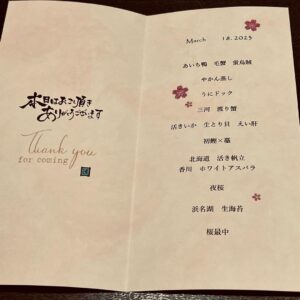 本日はお越し頂き
ありがとうございます
Thank you
for coming
March 18.2023
あいち鴨 毛蟹 蛍烏賊
やかん蒸し
うにドック
三河 渡り蟹
活きいか 生とり貝 えい肝
初鰹×藁
北海道 活き帆立
香川 ホワイトアスパラ
夜桜
浜名湖 生海苔
桜最中